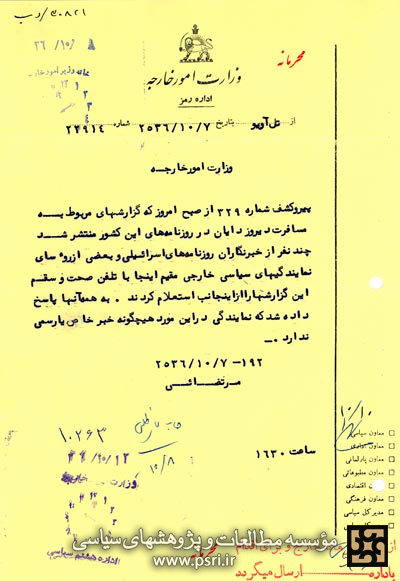 ۳۰۸۲۱/دب
محرمانه
وزارت امور خارجه
اداره رمز
از تل آویو بتاریخ ۲۵۳۶/۱۰/۷ شماره ۲۲۹۱۴
وزارت امور خارجه
پیروکشف شماره ۳۲۹ از صبح امروز که گزارشهای مربوط به
مسافرت دیروز دایان در روزنامه‌های این کشور منتشر شد
چند نفر از خبرنگاران روزنامه‌های اسرائیلی و بعضی از روسای
نمایندگیهای سیاسی خارجی مقیم اینجا با تلفن صحت و سقم
این گزارشها را از اینجانب استعلام کردند . به همه آنها پاسخ
داده شد که نمایندگی در این مورد هیچگونه خبر خاص یا رسمی
ندارد .ـ
۱۹۲–۲۵۳۶/۱۰/۷
مرتضائی
۱۰۲۶۳
۱۰/۸
ساعت ۱۶۳۰
معاون سیاسی
معاون اداری
معاون پارلمانی
معاون مطبوعاتی
اقتصادی
معاون فرهنگی
مدیر کل سیاسی
اداره هفتم سیاسی
محرمانه
باداره ارسال میگردد
مؤسسه مطالعات و پژوهشهای سیاسی
www.psri.ir